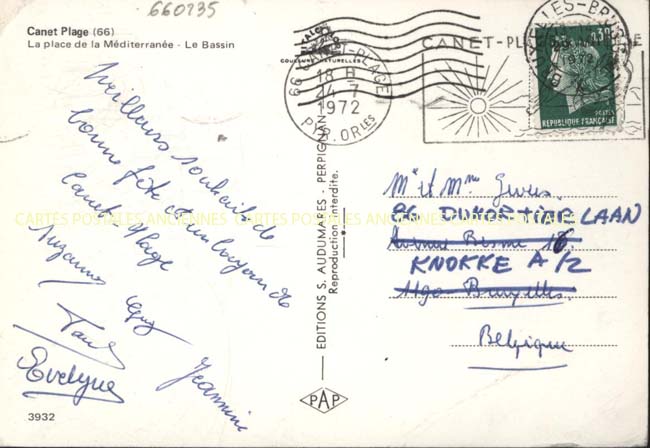 660235
Canet Plage (66)
La place de la Méditerranée - Le Bassin
COULEURS NATURELLES
66 CANET-PLAGE
18 H
24-7
1972
PYR. ORles
CANET-PL
0,30
POSTES
REPUBLIQUE FRANCAISE
1972
Meilleurs souhaits de
bonne fête et un bonjour de
Canet Plage
Suzanne Guy Jeannine
Paul
Evelyne
EDITIONS S. AUDUMARES - PERPIGNAN
Reproduction interdite.
Mr et Mme
DUMORTIER LAAN
Avenue 16
KNOKKE A/Z
1190 Bruxelles
Belgique
PAP
3932
CARTES POSTALES ANCIENNES CARTES POSTALES ANCIENNES CARTES POSTALES ANCIENNES